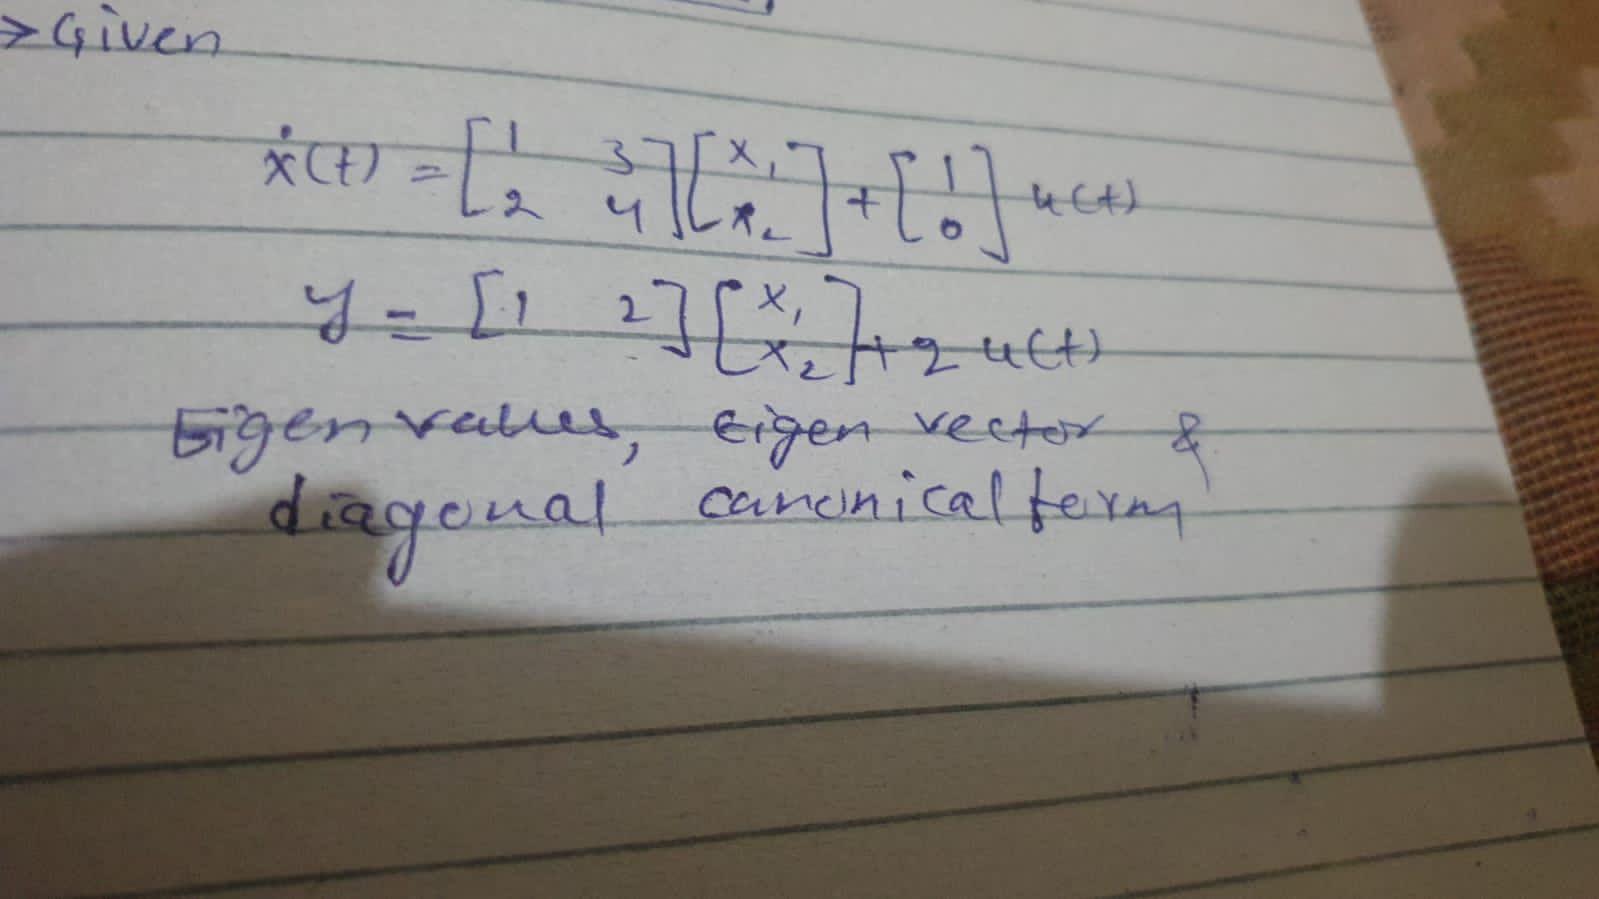 → Given
ẋ(t) = [1 3; 2 4] [x₁; x₂] + [1; 0] u(t)
y = [1 2] [x₁; x₂] + 2 u(t)
Eigen values, Eigen vector &
diagonal canonical form